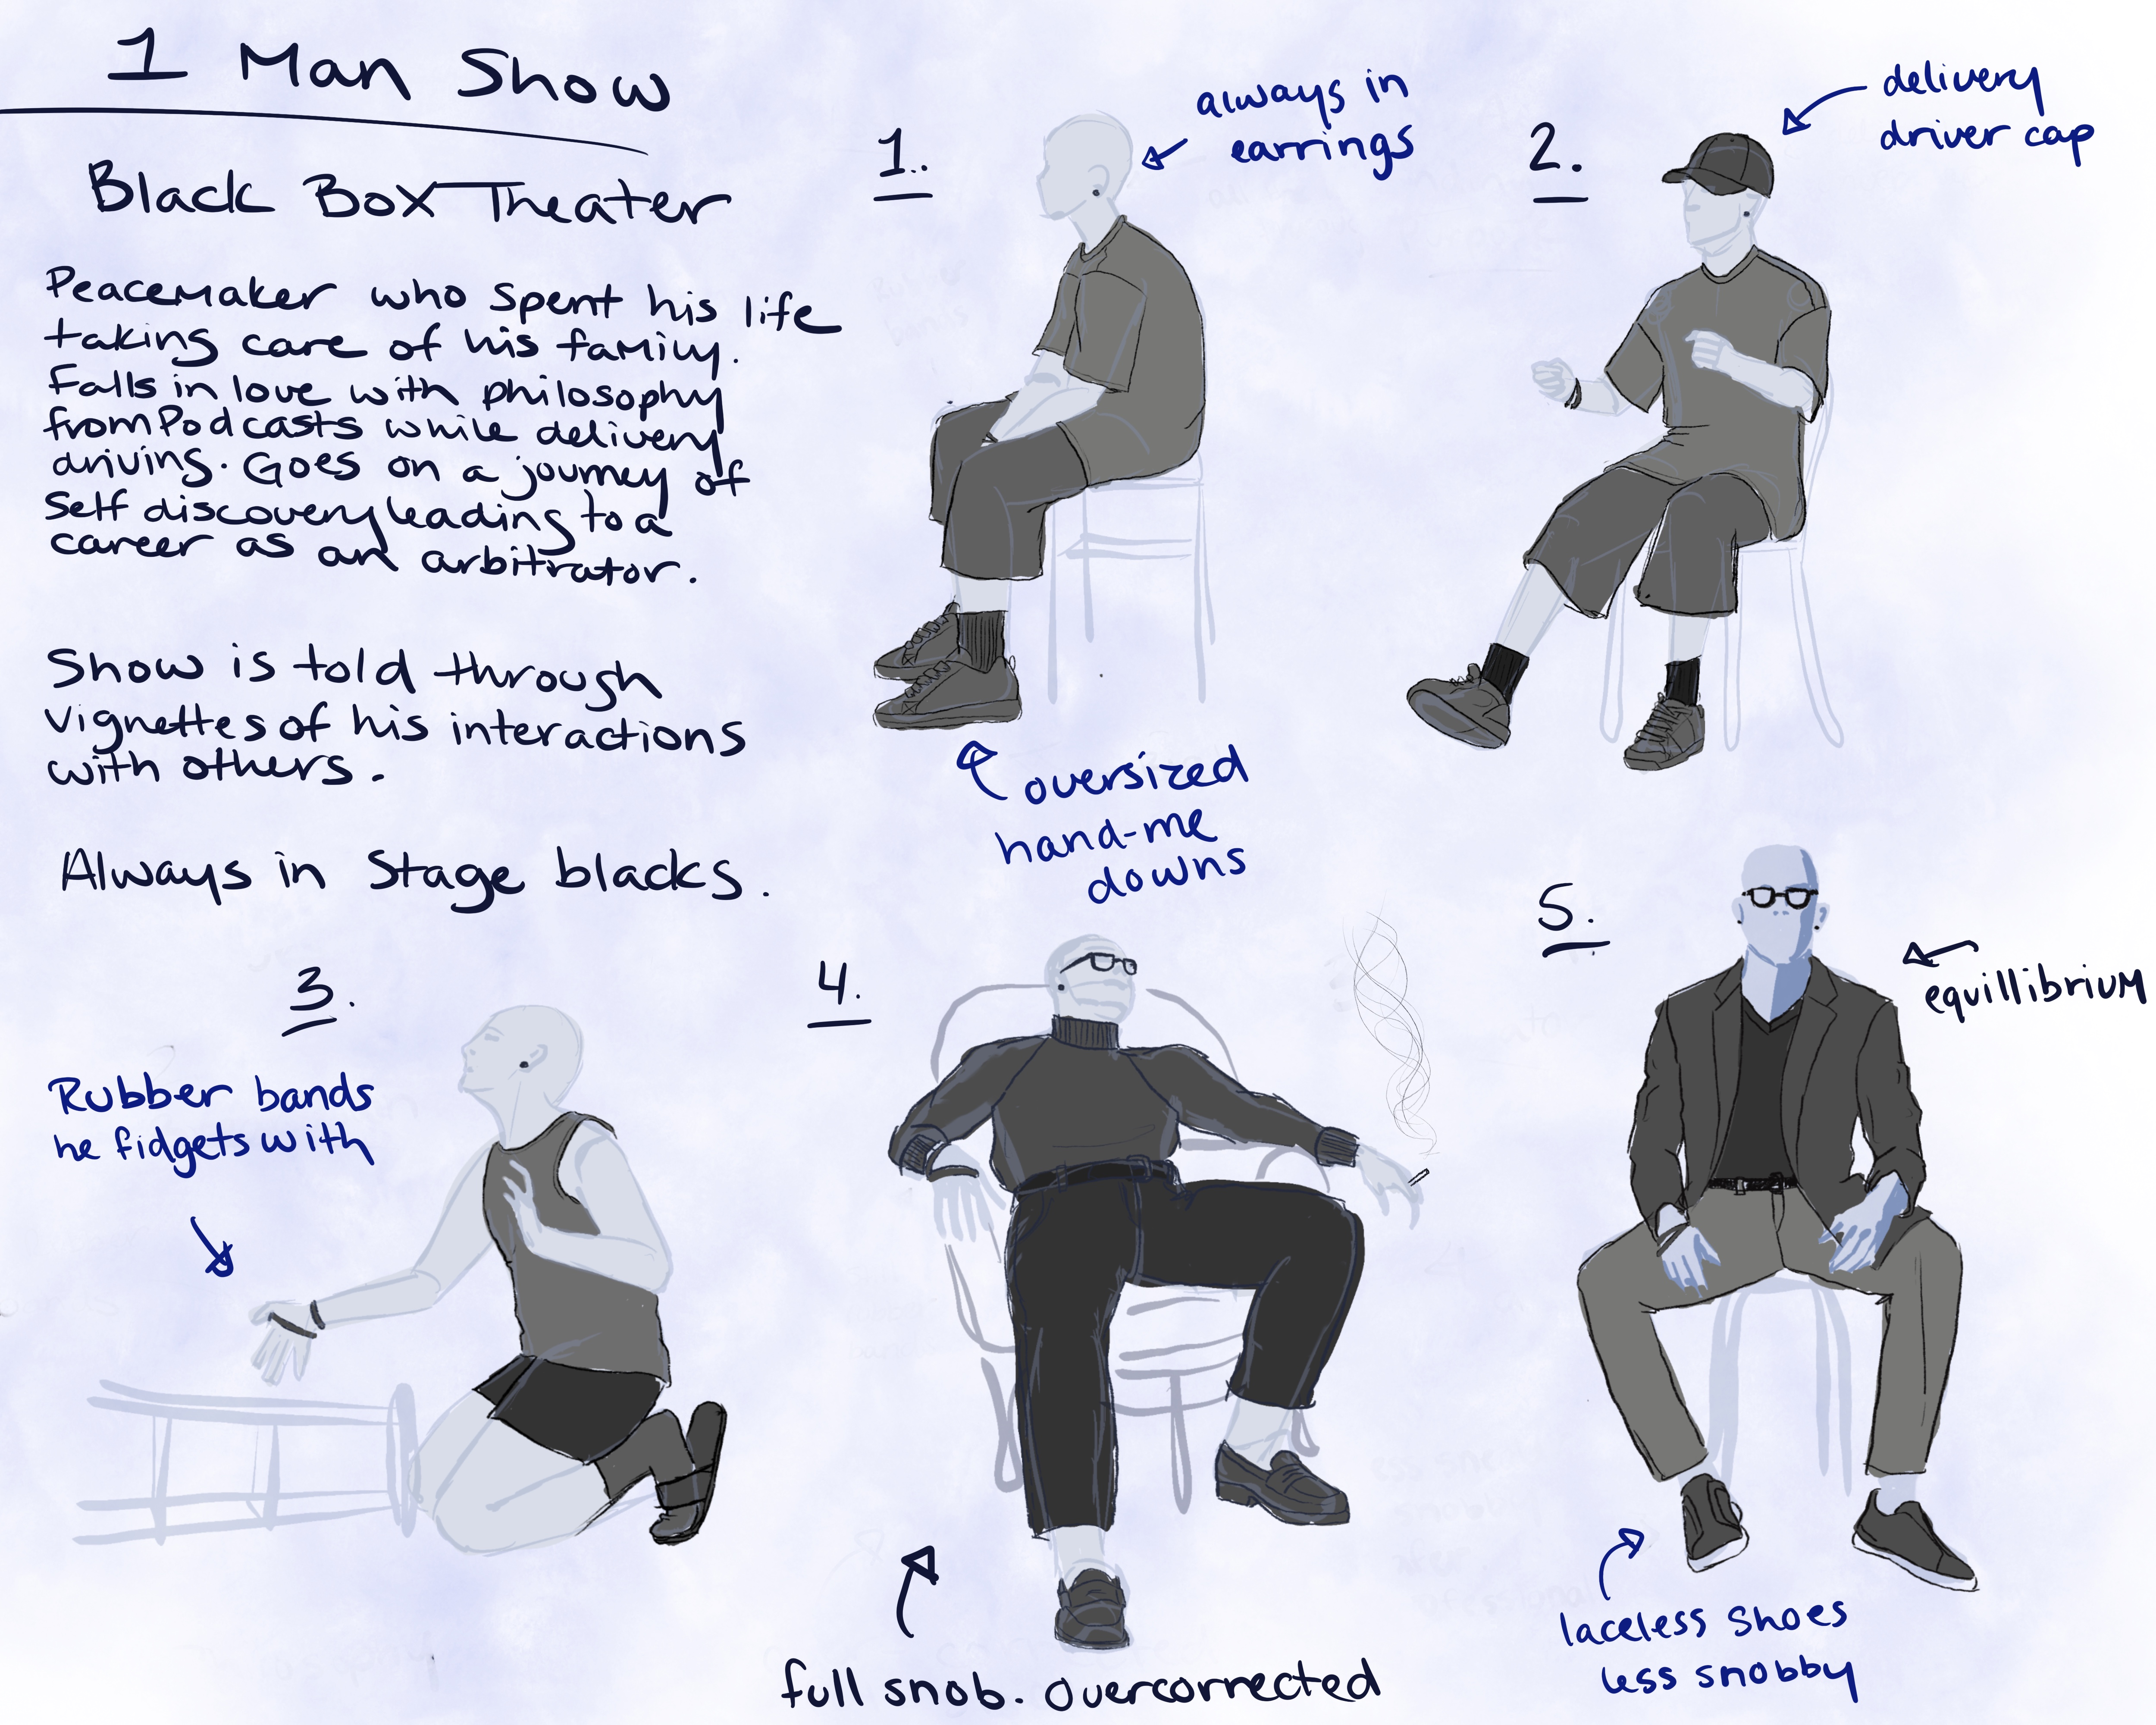 1 Man Show
Black Box Theater
Peacemaker who spent his life
taking care of his family.
Falls in love with philosophy
from Podcasts while delivery
driving. Goes on a journey of
self discovery leading to a
career as an arbitrator.
Show is told through
vignettes of his interactions
with others.
Always in Stage blacks.
1.
always in
earrings
oversized
hand-me
downs
2.
delivery
driver cap
3.
Rubber bands
he fidgets with
4.
full snob. overcorrected
5.
equillibrium
laceless shoes
less snobby